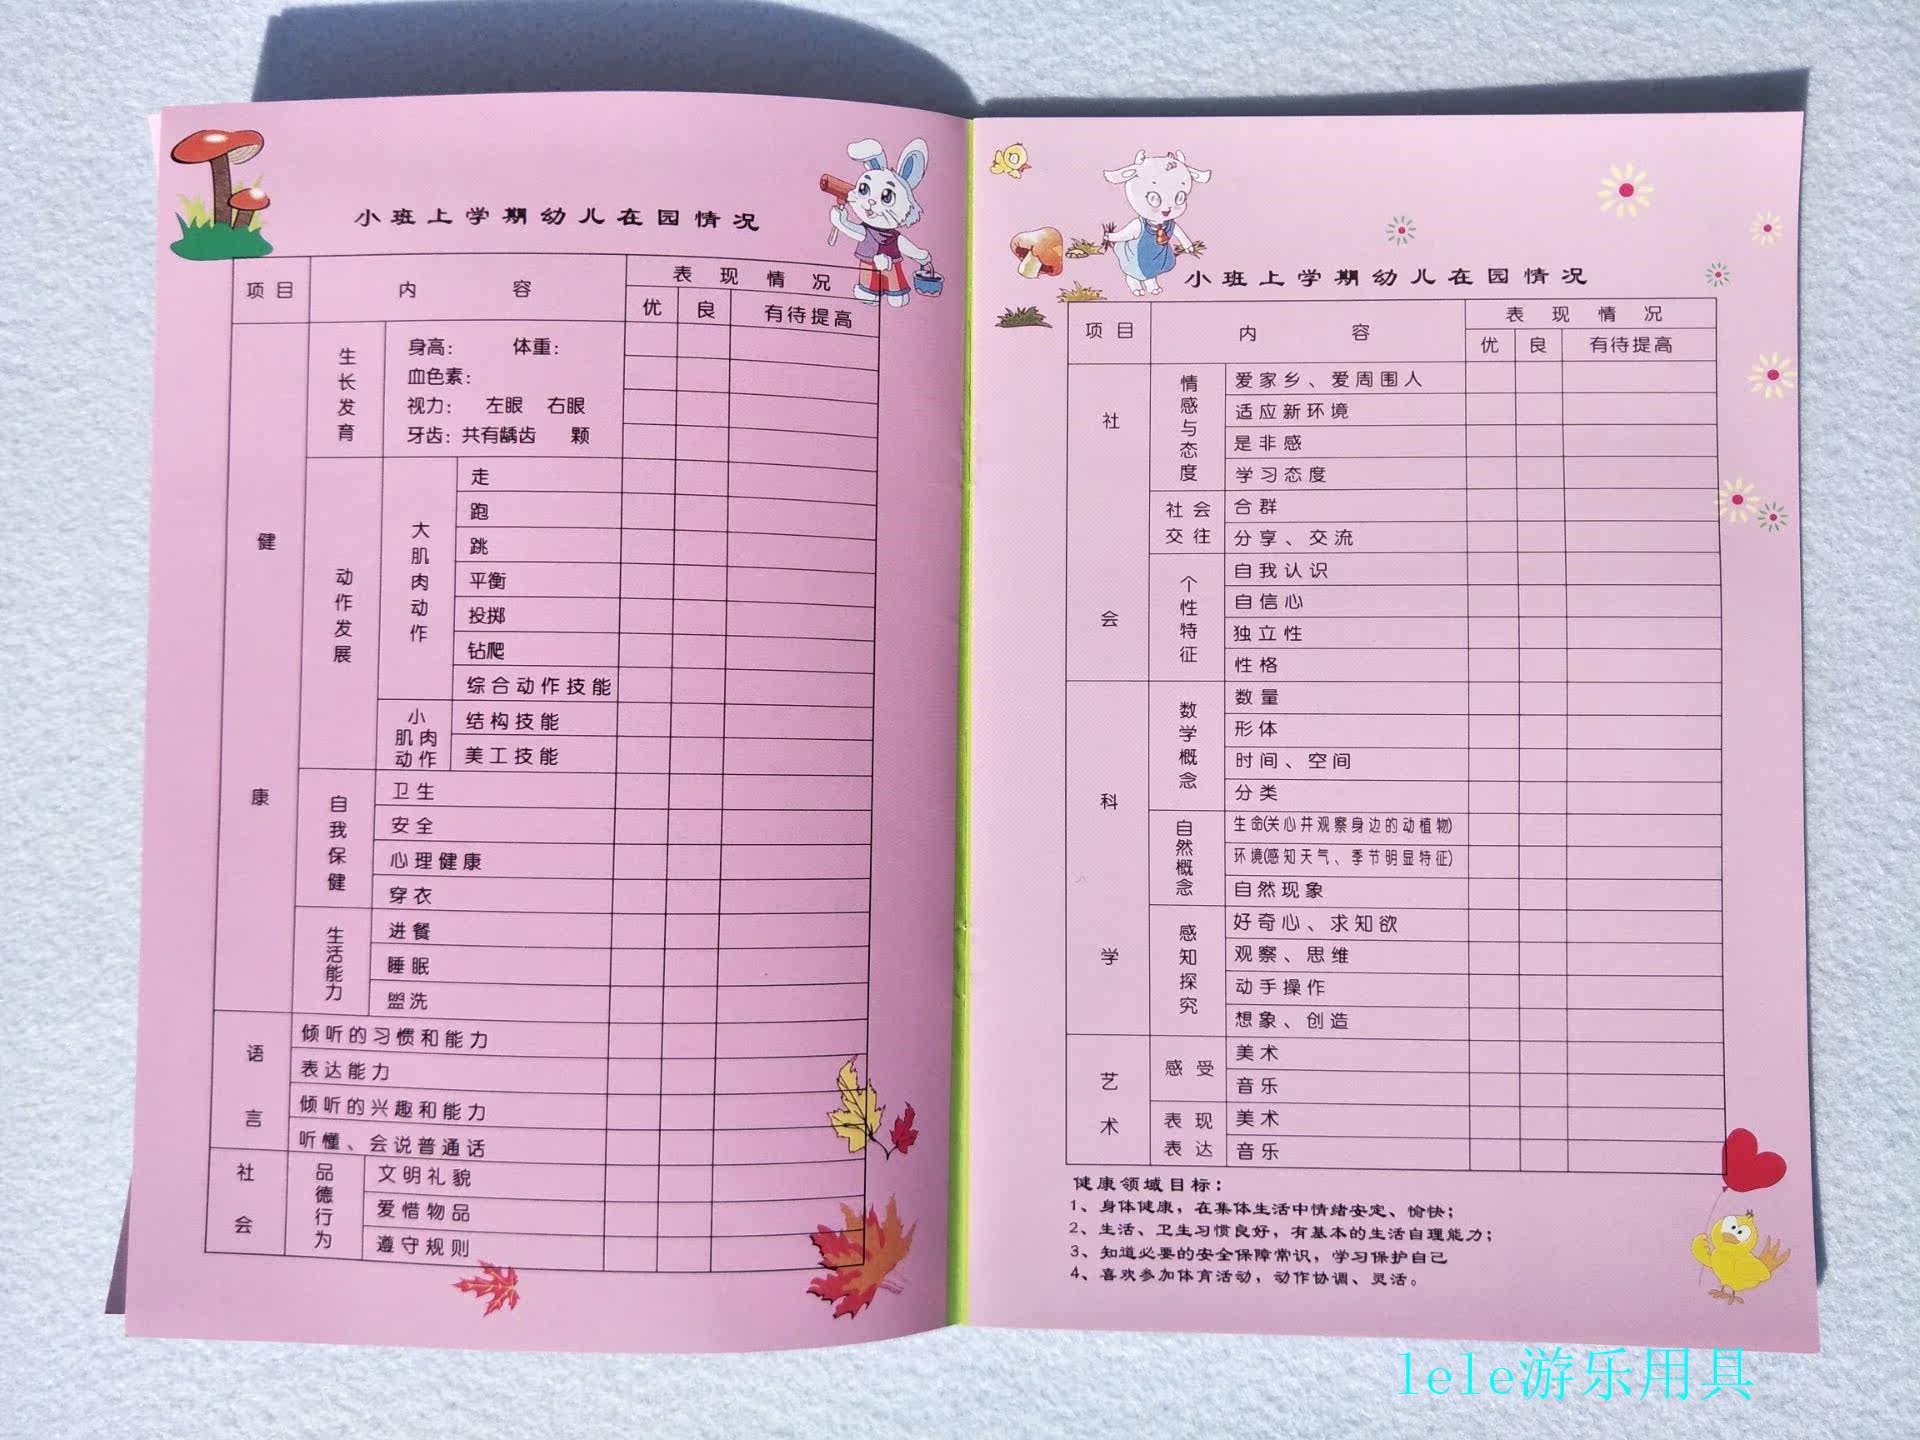 小班上学期幼儿在园情况
项目 内容 表现情况
优 良 有待提高
健康
生长发育
身高： 体重：
血色素：
视力： 左眼 右眼
牙齿：共有龋齿 颗
动作发展
大肌肉动作
走
跑
跳
平衡
投掷
钻爬
综合动作技能
小肌肉动作
结构技能
美工技能
自我保健
卫生
安全
心理健康
穿衣
生活能力
进餐
睡眠
盥洗
语言
倾听的习惯和能力
表达能力
倾听的兴趣和能力
听懂、会说普通话
社会
品德行为
文明礼貌
爱惜物品
遵守规则
小班上学期幼儿在园情况
项目 内容 表现情况
优 良 有待提高
社会
情感与态度
爱家乡、爱周围人
适应新环境
是非感
学习态度
社会交往
合群
分享、交流
个性特征
自我认识
自信心
独立性
性格
科学
数学概念
数量
形体
时间、空间
分类
自然概念
生命(关心并观察身边的动植物)
环境(感知天气、季节明显特征)
自然现象
感知探究
好奇心、求知欲
观察、思维
动手操作
想象、创造
艺术
感受
美术
音乐
表现表达
美术
音乐
健康领域目标：
1、身体健康，在集体生活中情绪安定、愉快；
2、生活、卫生习惯良好，有基本的生活自理能力；
3、知道必要的安全保障常识，学习保护自己
4、喜欢参加体育活动，动作协调、灵活。
lele游乐用具